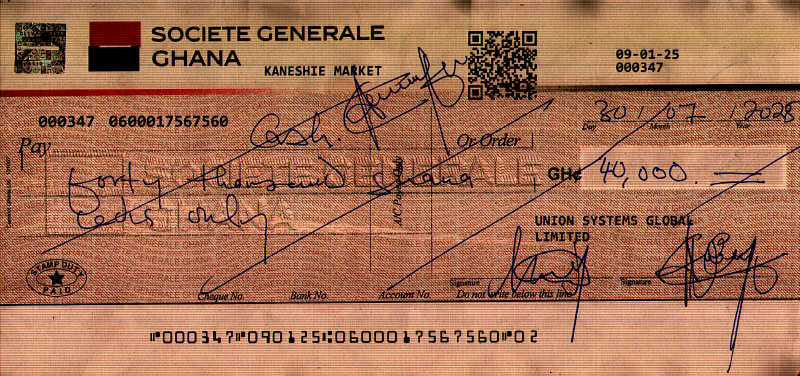 SOCIETE GENERALE
GHANA
KANESHIE MARKET
09-01-25
000347
000347 0600017567560
30 / 07 / 2025
Day Month Year
Pay
Cash.
Or Order
SOCIETE GENERALE
GHANA
forty thousand Ghana
Cedis only
GH¢ 40,000.
A/C Payee Only
UNION SYSTEMS GLOBAL
LIMITED
STAMP DUTY
PAID
Cheque No. Bank No. Account No.
Signature Signature
Do not write below this line
⑈000347⑈090125⑆0600017567560⑈02